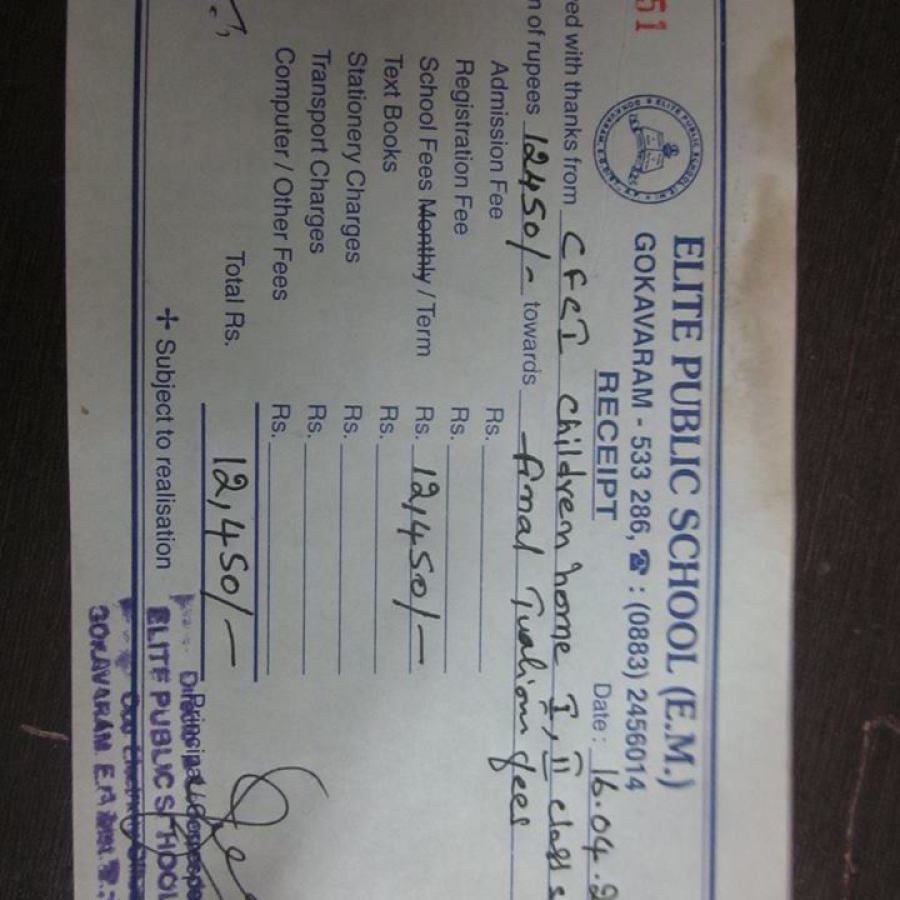 ELITE PUBLIC SCHOOL (E.M.)
GOKAVARAM - 533 286, ☎ : (0883) 2456014
51
RECEIPT
Date : 16.04.2
ed with thanks from CFCI children home I, II class s
n of rupees 12450/- towards final Tualiom fees
Admission Fee Rs.
Registration Fee Rs.
School Fees Monthly / Term Rs. 12,450/-
Text Books Rs.
Stationery Charges Rs.
Transport Charges Rs.
Computer / Other Fees Rs.
Total Rs. 12,450/-
Subject to realisation
ELITE PUBLIC SCHOOL
GOKAVARAM